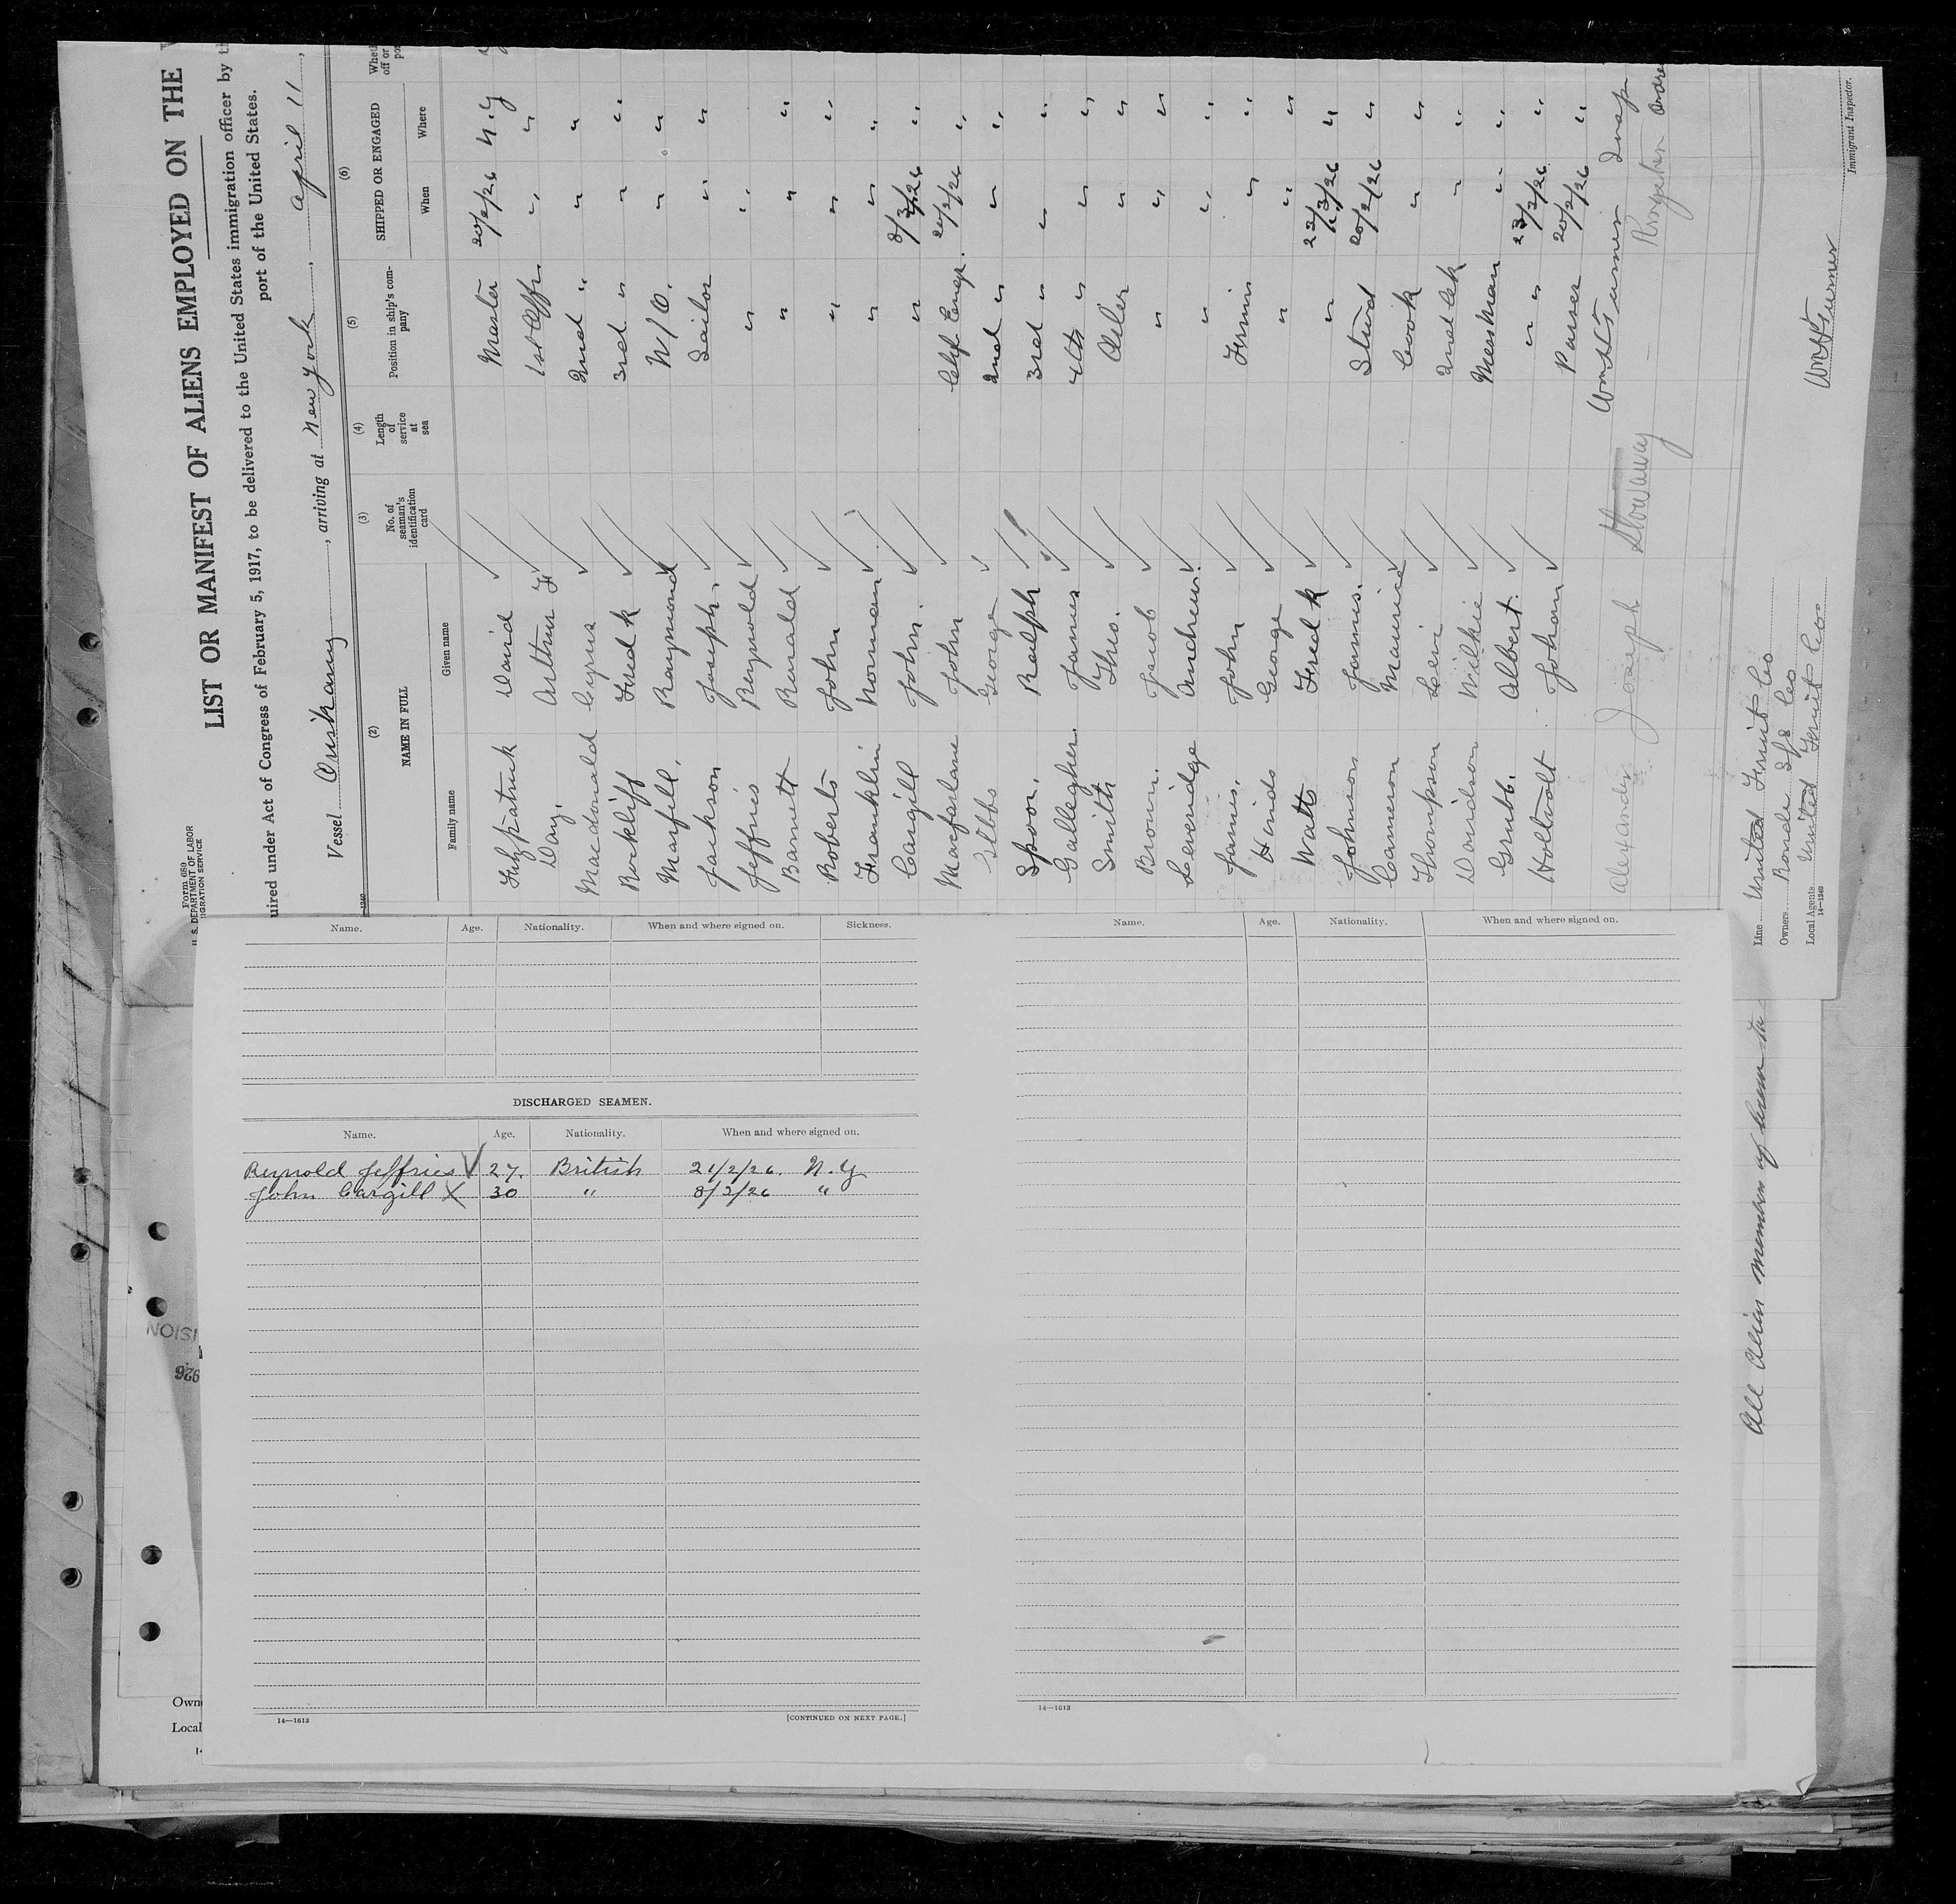 Form 689
U. S. DEPARTMENT OF LABOR
IGRATION SERVICE
LIST OR MANIFEST OF ALIENS EMPLOYED ON THE
uired under Act of Congress of February 5, 1917, to be delivered to the United States immigration officer by
port of the United States.
Vessel Oriskany, arriving at New York, April 11,
(2) (3) (4) (5) (6)
NAME IN FULL
Family name Given name
No. of seaman's identification card
Length of service at sea
Position in ship's company
SHIPPED OR ENGAGED
When Where
Fitzpatrick David Master 20/2/26 N.Y
Day. Arthur F 1st Offr. " "
Macdonald Cyrus 2nd " " "
Rockliff Fredk 3rd " " "
Marfell. Raymond W/O. " "
Jackson Joseph. Sailor " "
Jeffries Reynold " "
Barnett Renald " " "
Roberts John " " "
Franklin Norman " " "
Cargill John. " 8/3/26 "
Macfarlane John Chf Engr. 20/2/26 "
Gibbs George 2nd " " "
Spoor. Ralph 3rd " " "
Gallegher. James 4th " " "
Smith Tho. Oiler " "
Brown. Jacob " " "
Leveridge Andrew. " " "
James. John Firmin " "
Hinds George " " "
Watts Fredk " 22/3/26 "
Johnson James. Stwd 20/2/26 "
Cameron Maurice Cook " "
Thompson Levi 2nd Ck " "
Davidson Wilkie Mess Man " "
Grubb. Albert. " " 23/2/26 "
Holtvolt Johan Purser 20/2/26 "
Alexander Joseph Stowaway
Line United Fruit Co
Owners
Local Agents United Fruit Co
14—1240
Immigrant Inspector.
Name. Age. Nationality. When and where signed on. Sickness.
DISCHARGED SEAMEN.
Name. Age. Nationality. When and where signed on.
Reynold Jeffries ✓ 27. British 21/2/26. N.Y
John Cargill X 30 " 8/3/26 "
14—1613 [CONTINUED ON NEXT PAGE.]
Name. Age. Nationality. When and where signed on.
14—1613
All Alien members of crew
ISION
926
Own
Local
14